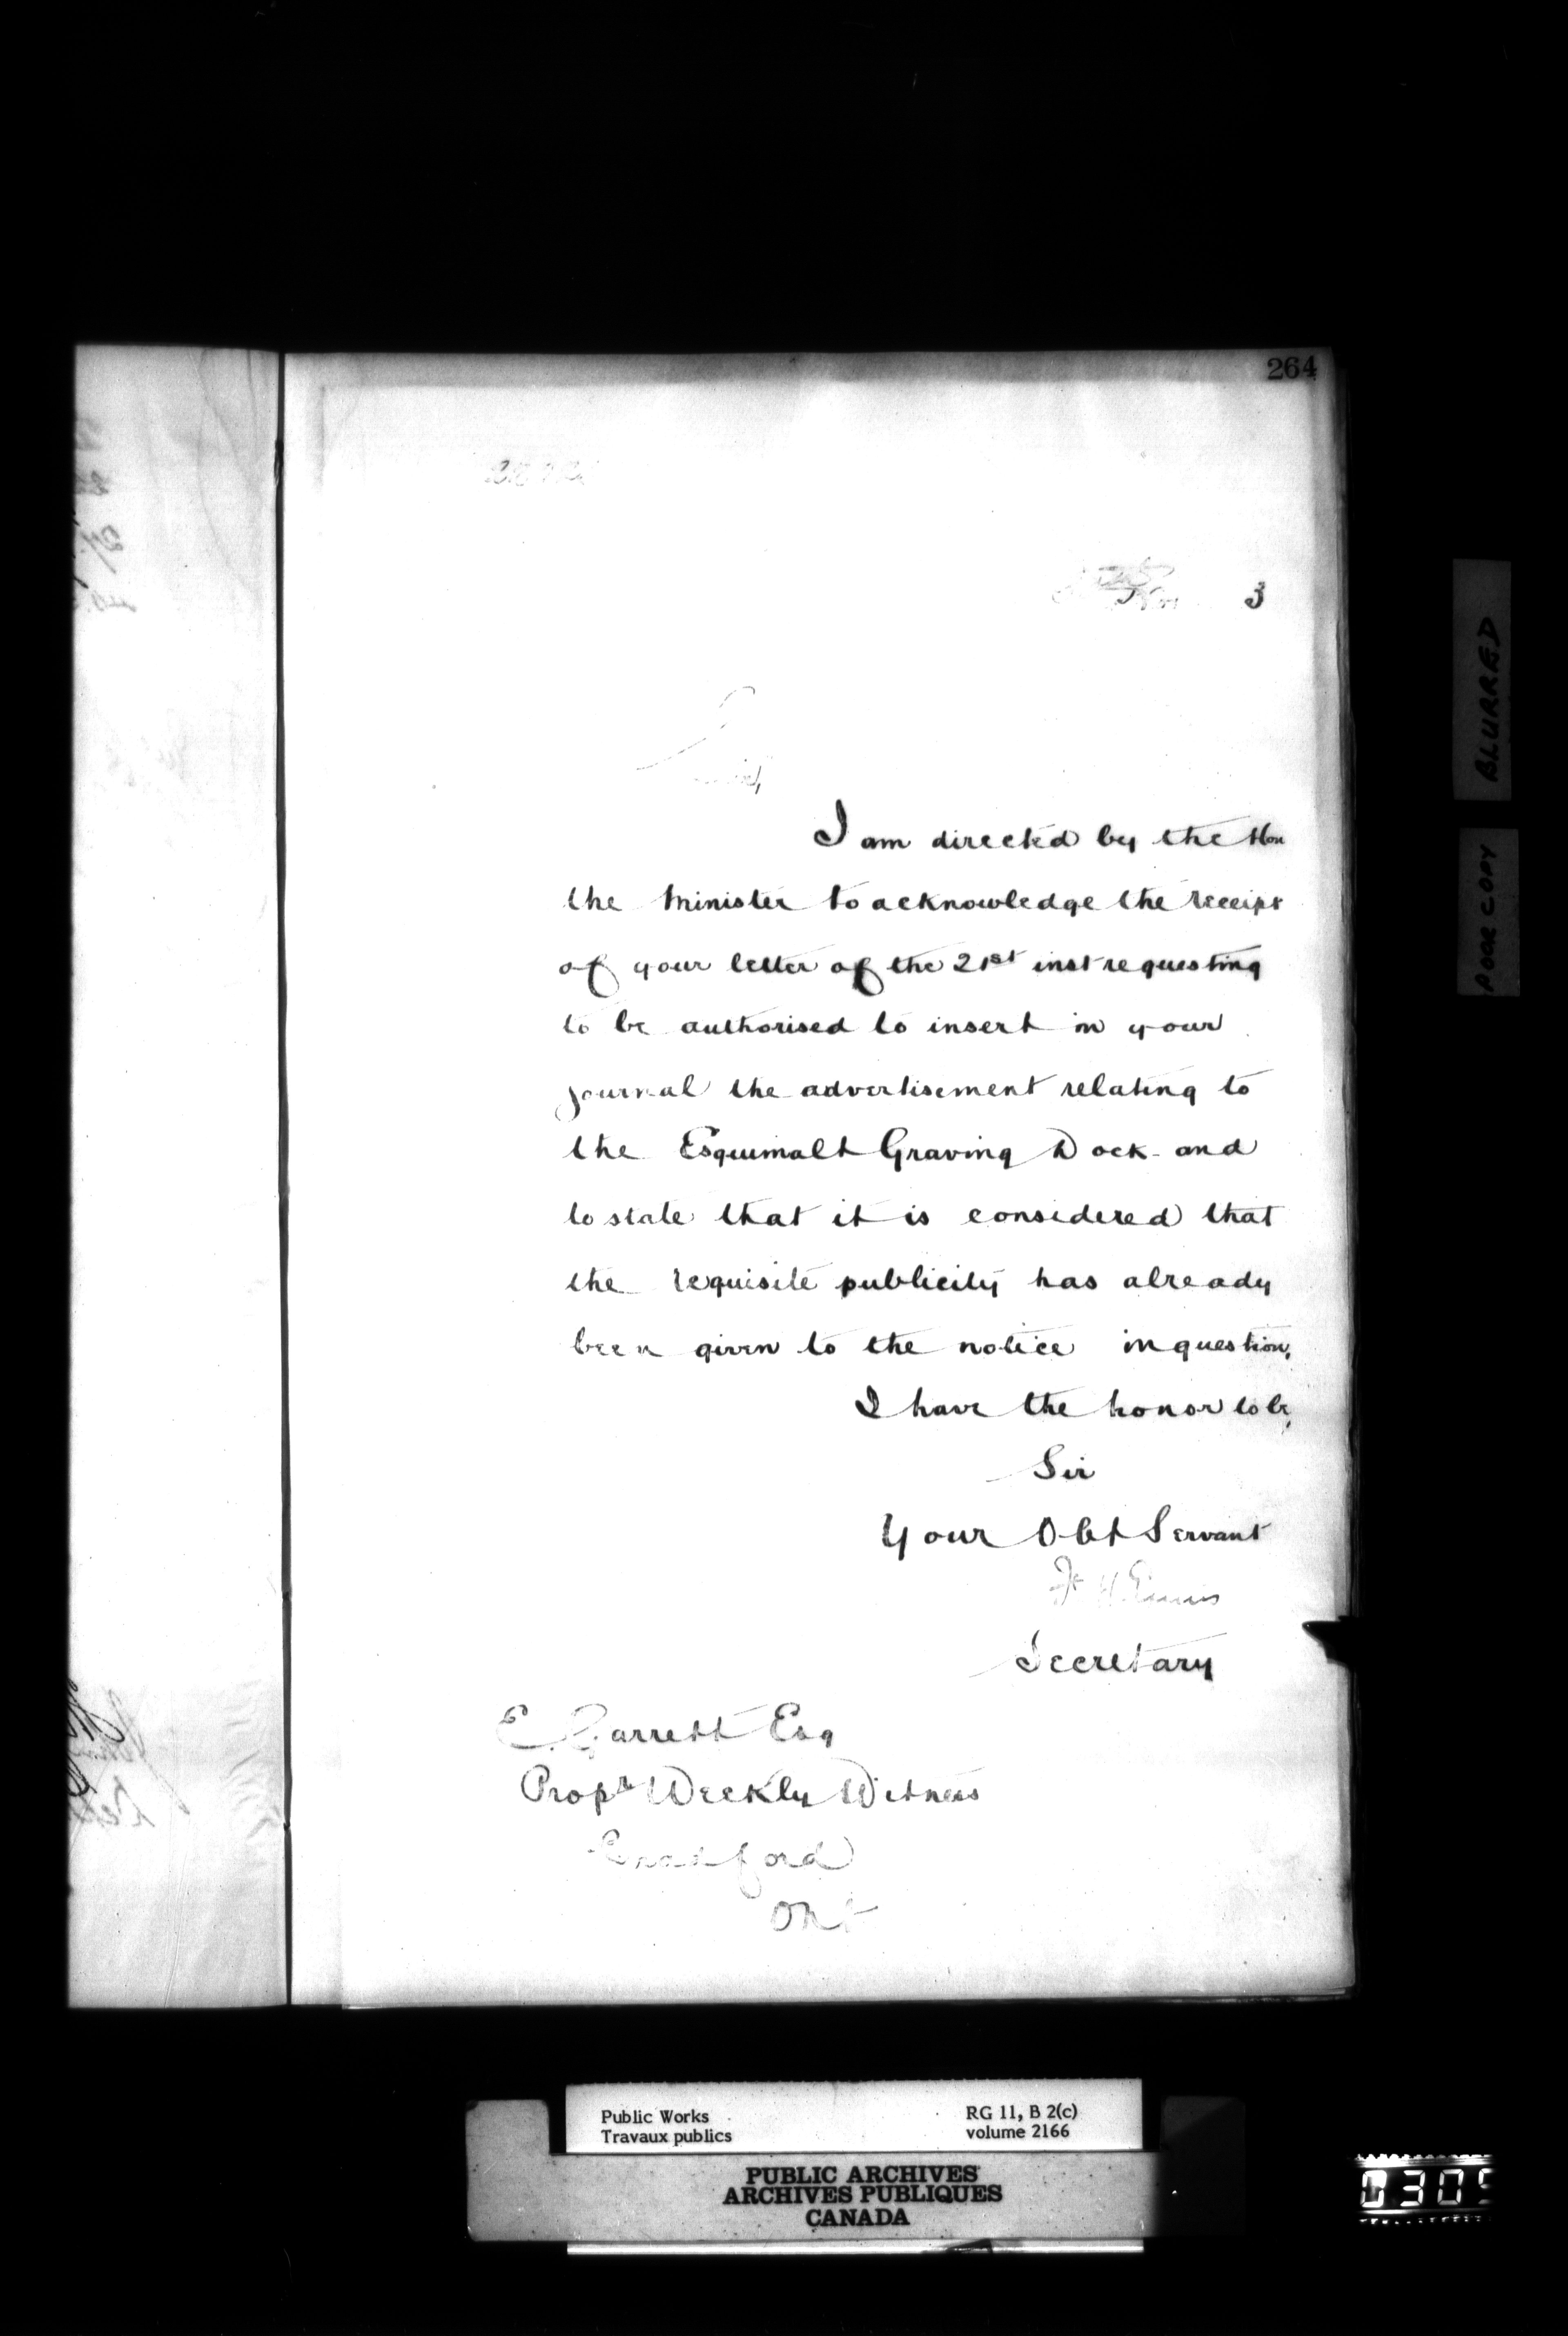 264
3
Sir,
I am directed by the Hon
the Minister to acknowledge the receipt
of your letter of the 21st inst requesting
to be authorised to insert in your
journal the advertisement relating to
the Esquimalt Graving Dock and
to state that it is considered that
the requisite publicity has already
been given to the notice in question,
I have the honor to be,
Sir
Your Obt Servant
F H Ennis
Secretary
E. Garrett Esq
Propr Weekly Witness
Bradford
Ont
BLURRED
POOR COPY
Public Works
Travaux publics
RG 11, B 2(c)
volume 2166
PUBLIC ARCHIVES
ARCHIVES PUBLIQUES
CANADA
0305